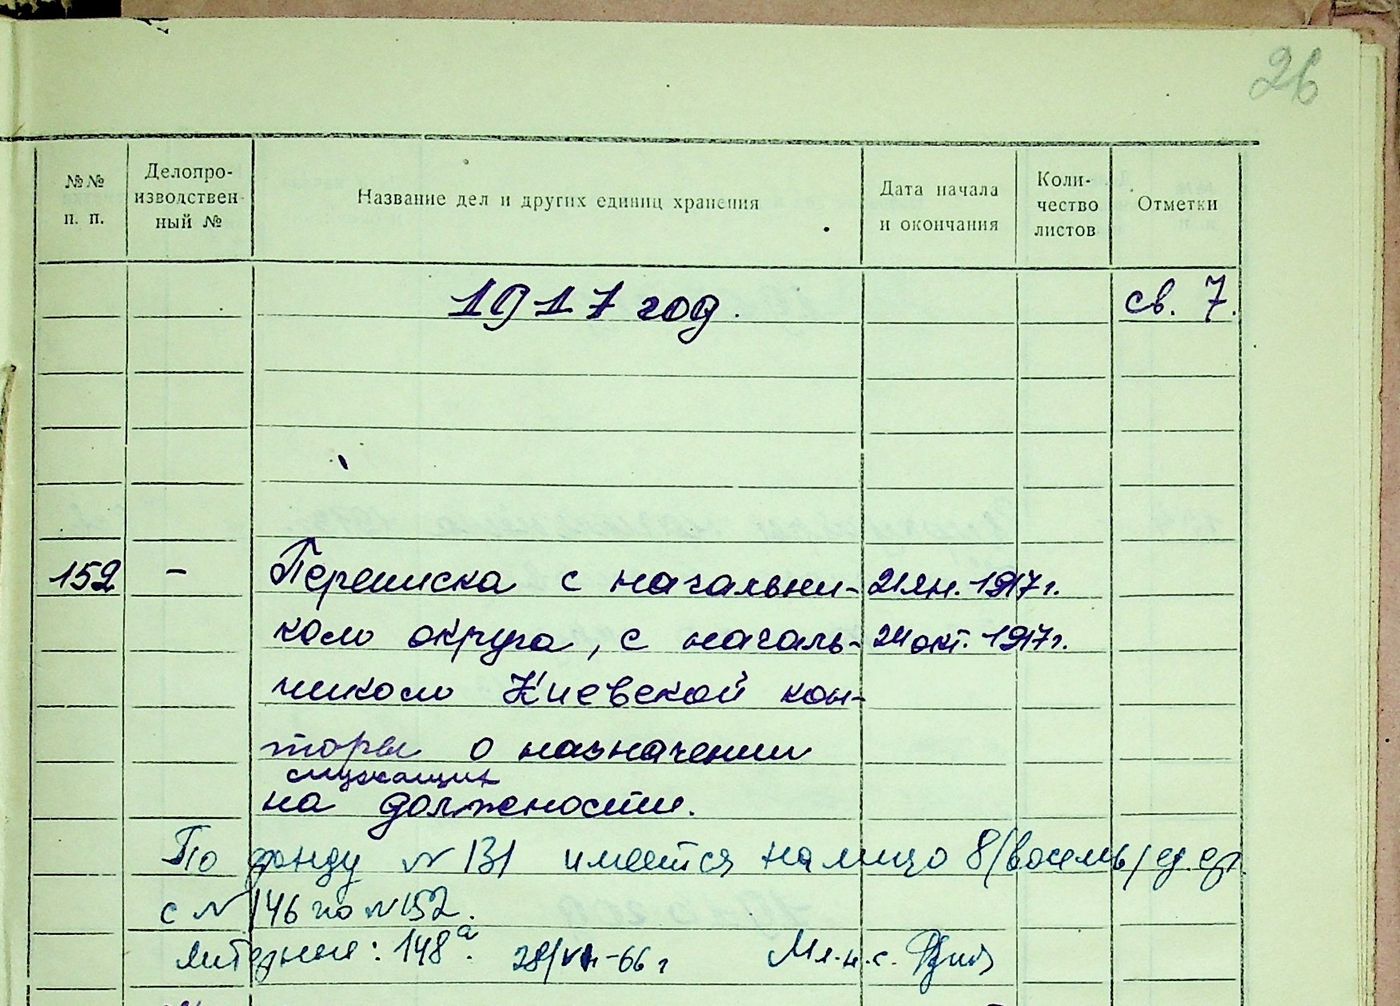 26
№№ п. п.
Делопро-
изводствен-
ный №
Название дел и других единиц хранения
Дата начала
и окончания
Коли-
чество
листов
Отметки
1917 год. св. 7.
152 — Переписка с начальни- 21 ян. 1917 г.
ком округа, с началь- 24 окт. 1917 г.
ником Киевской кон-
торы о назначении
служащих
на должности.
По фонду № 131 имеется налицо 8/восемь/ ед. хр.
с № 146 по № 152.
Литерные: 148а. 28/VII-66 г Мл. н. с.